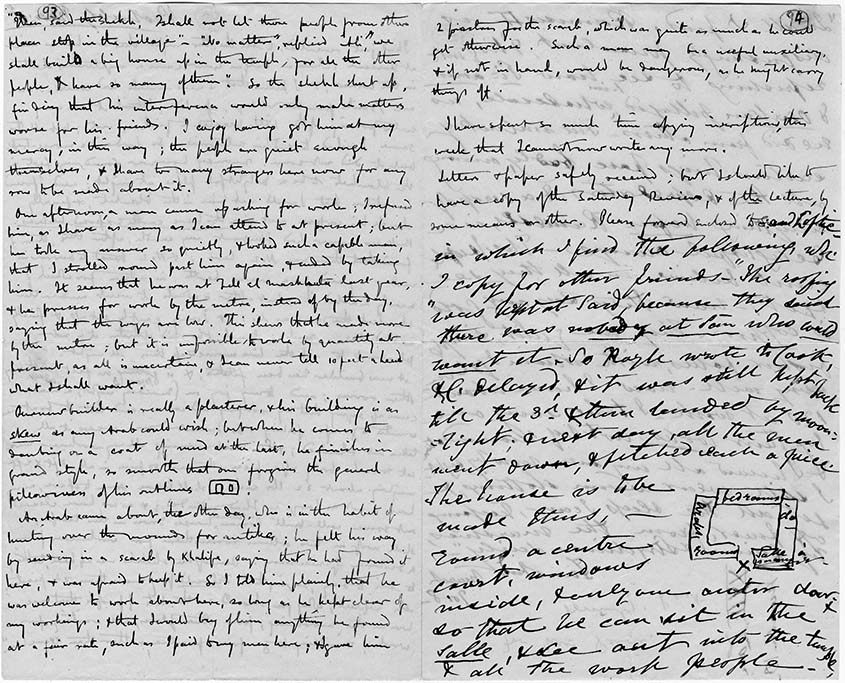 93
"Then, said the sheikh, I shall not let those people from other
places stop in the village" – "No matter", replied Ali, "we
shall build a big house up in the temple, for all the other
people, & have so many of them". So the sheikh shut up,
finding that his interference would only make matters
worse for his friends. I enjoy having got him at my
mercy, in this way; the people are quiet enough
themselves, & I have too many strangers here now for any
row to be made about it.
One afternoon, a man came up asking for work; I refused
him, as I have as many as I can attend to at present; but
he took my answer so quietly, & looked such a capable man,
that I strolled round past him again, & ended by taking
him. It seems that he was at Tell el Maskhuta last year,
& he presses for work by the metre, instead of by the day,
saying that the wages are low. This shews that he made more
by the metre; but it is impossible to work by quantity at
present, as all is uncertain, & I can never tell 10 feet ahead
what I shall want.
Our builder is really a plasterer, & his building is as
skew as any Arab could wish; but when he comes to
daubing on a coat of mud at the last, he finishes in
grand style, so smooth that one forgives the general
pillowiness of his outlines
An Arab came about, the other day, who is in the habit of
hunting over the mounds for antikas; he felt his way
by sending in a scarab by Khalifa, saying that he had found it
here, & was afraid to keep it. So I told him plainly, that he
was welcome to work about here, so long as he kept clear of
my workings; & that I would buy of him anything he found
at a fair rate, such as I paid to my men here; & I gave him
94
2 piastres for the scarab, which was quite as much as he could
get otherwise. Such a man may be a useful auxiliary,
& if not in hand, would be dangerous, as he might carry
things off.
I have spent so much time copying inscriptions, this
week, that I cannot now write any more.
Letter & paper safely received; but I should like to
have a copy of the Saturday Review, & of the lecture, by
some means or other. Please forward enclosed to
in which I find the following, whc
I copy for other friends – "The roofing
"was kept at Said, because they said
there was nobody at San who would
want it. So Hayle wrote to Cook,
& delayed, & it was still kept back
till the 3rd & then landed by moon-
-light; & next day, all the men
went down, & fetched each a piece.
The house is to be
made thus, –
round a centre
court, windows
inside, & only one outer door x
so that he can sit in the
Salle, & see out into the temple,
& all the work people –
bedrooms
do
rooms
Salle
x